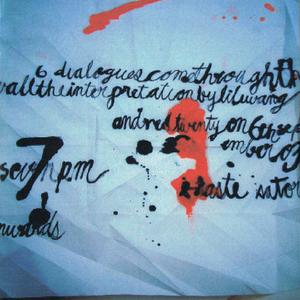 6 dialogues come through th
wall the interpretation by liluwang
and red twenty on 6th sept
ember 03
seven pm
7
i-taste
nwards